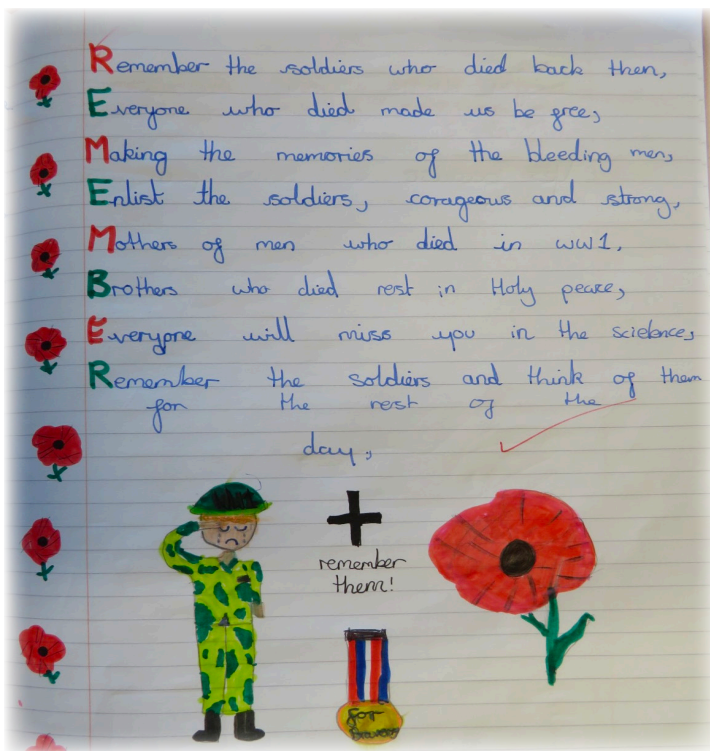 Remember the soldiers who died back then,
Everyone who died made us be free,
Making the memories of the bleeding men,
Enlist the soldiers, corageous and strong,
Mothers of men who died in WW1,
Brothers who died rest in Holy peace,
Everyone will miss you in the scielence,
Remember the soldiers and think of them
for the rest of the
day,
remember
them!
for